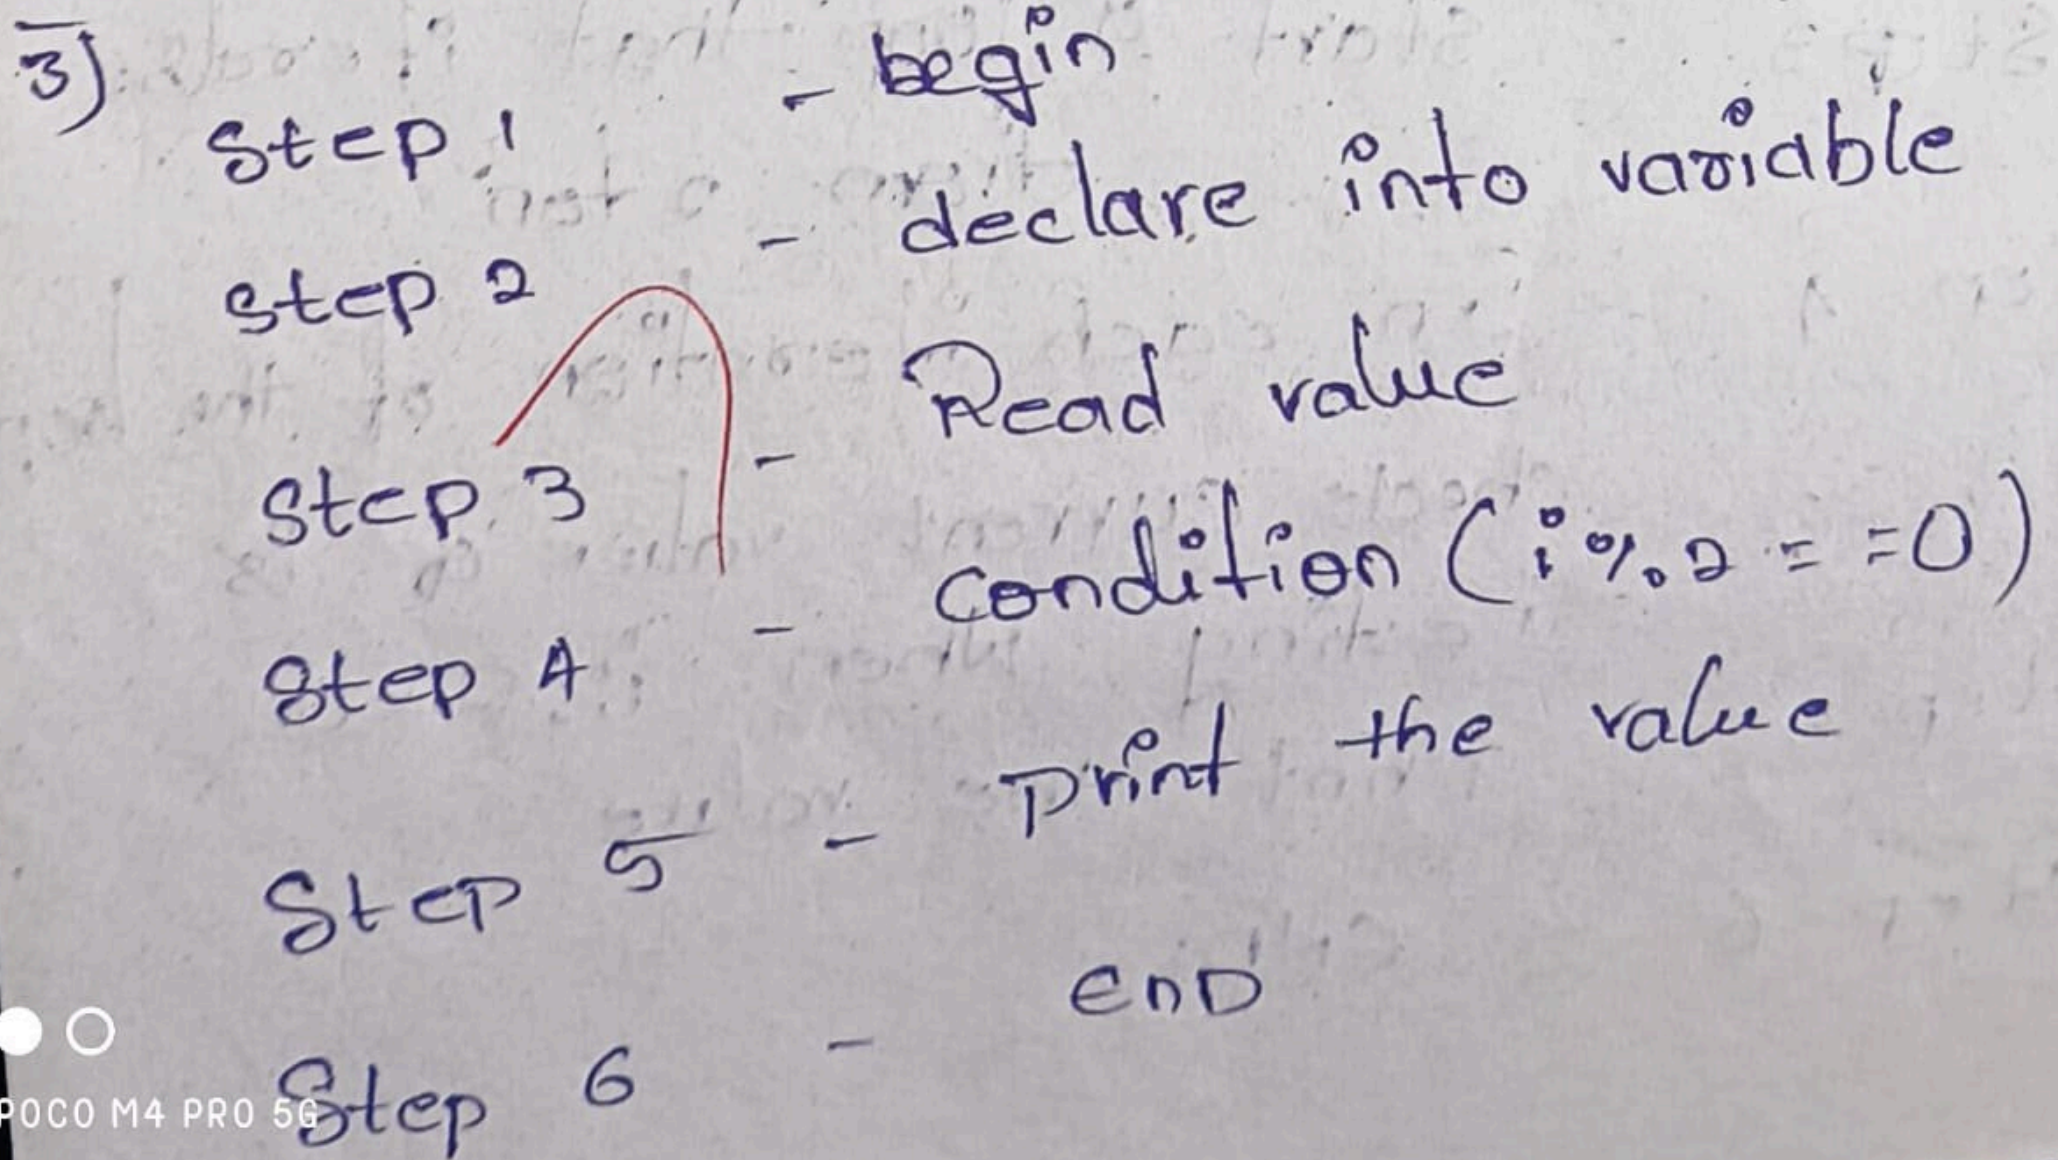 3)
Step 1 - begin
Step 2 - declare into variable
Step 3 - Read value
Step 4 - condition (i%2 = =0)
Step 5 - print the value
Step 6 - enD
POCO M4 PRO 5G